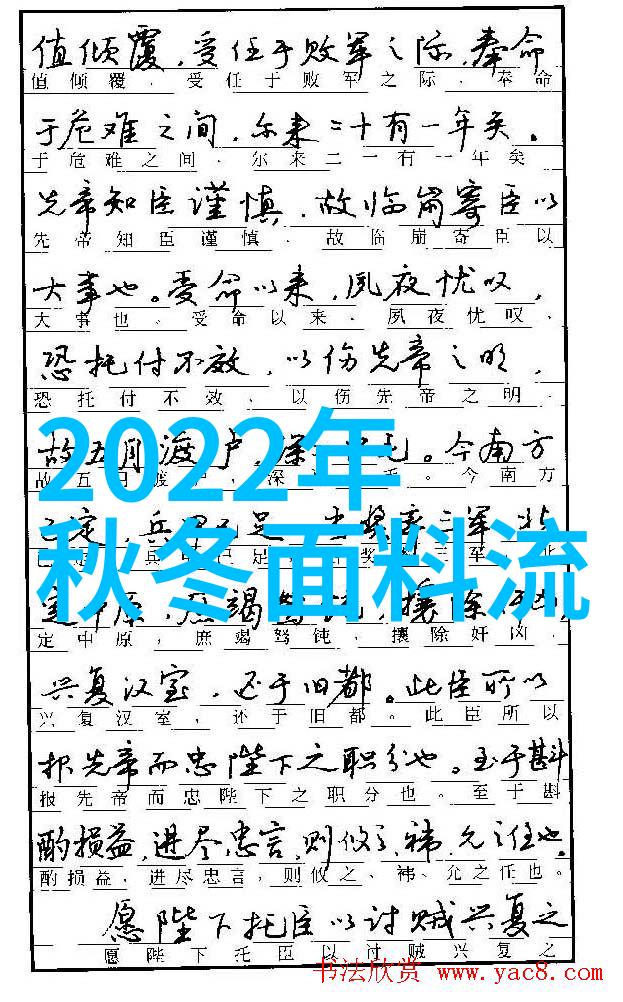 值倾覆，受任于败军之际，奉命
值倾覆，受任于败军之际，奉命
于危难之间，尔来二十有一年矣。
于危难之间，尔来二一有一年矣
先帝知臣谨慎，故临崩寄臣以
先帝知臣谨慎，故临崩寄臣以
大事也。受命以来，夙夜忧叹，
大事也。受命以来，夙夜忧叹，
恐托付不效，以伤先帝之明，
恐托付不效，以伤先帝之明，
2022年
故五月渡泸，深 毛。今南方
故五 深 毛。今南方
已定，兵甲已足， 奖 三军，北
兵 已足， 奖 三军 北
秋冬面料流
定中原，庶竭驽钝，攘除奸凶，
定中原，庶竭驽钝，攘除奸凶，
兴复汉室，还于旧都。此臣所以
兴复汉室，还于旧都。此臣所以
报先帝而忠陛下之职分也。至于斟
报先帝而忠陛下之职分也。至于斟
酌损益，进尽忠言，则攸之、祎、允之任也。
酌损益，进尽忠言，则攸之、祎、允之任也。
愿陛下托臣以讨贼兴复之
愿陛下托臣以讨贼兴复之
书法欣赏 www.yac8.com